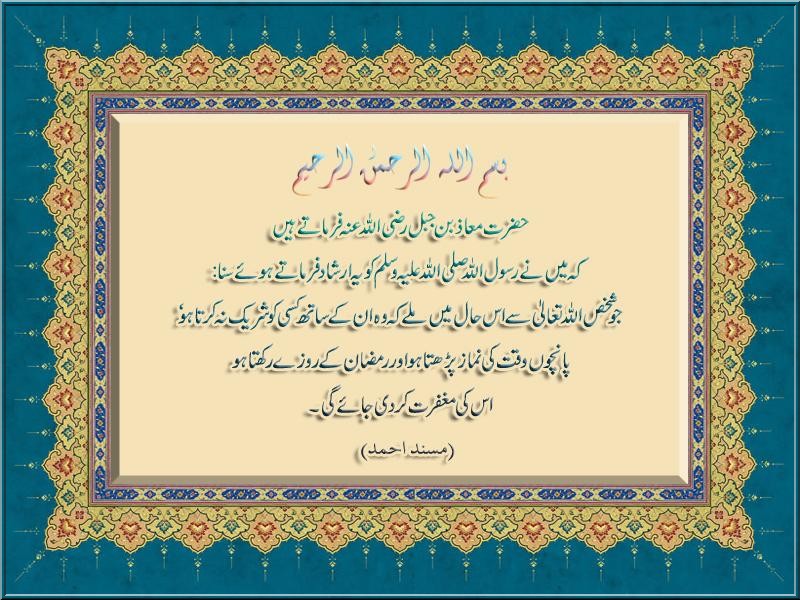 بسم الله الرحمٰن الرحیم
حضرت معاذ بن جبل رضی اللہ عنہ فرماتے ہیں
کہ میں نے رسول اللہ صلی اللہ علیہ وسلم کو یہ ارشاد فرماتے ہوئے سنا:
جو شخص اللہ تعالیٰ سے اس حال میں ملے کہ وہ ان کے ساتھ کسی کو شریک نہ کرتا ہو‘
پانچوں وقت کی نماز پڑھتا ہو اور رمضان کے روزے رکھتا ہو
اس کی مغفرت کر دی جائے گی ۔
(مسند احمد)